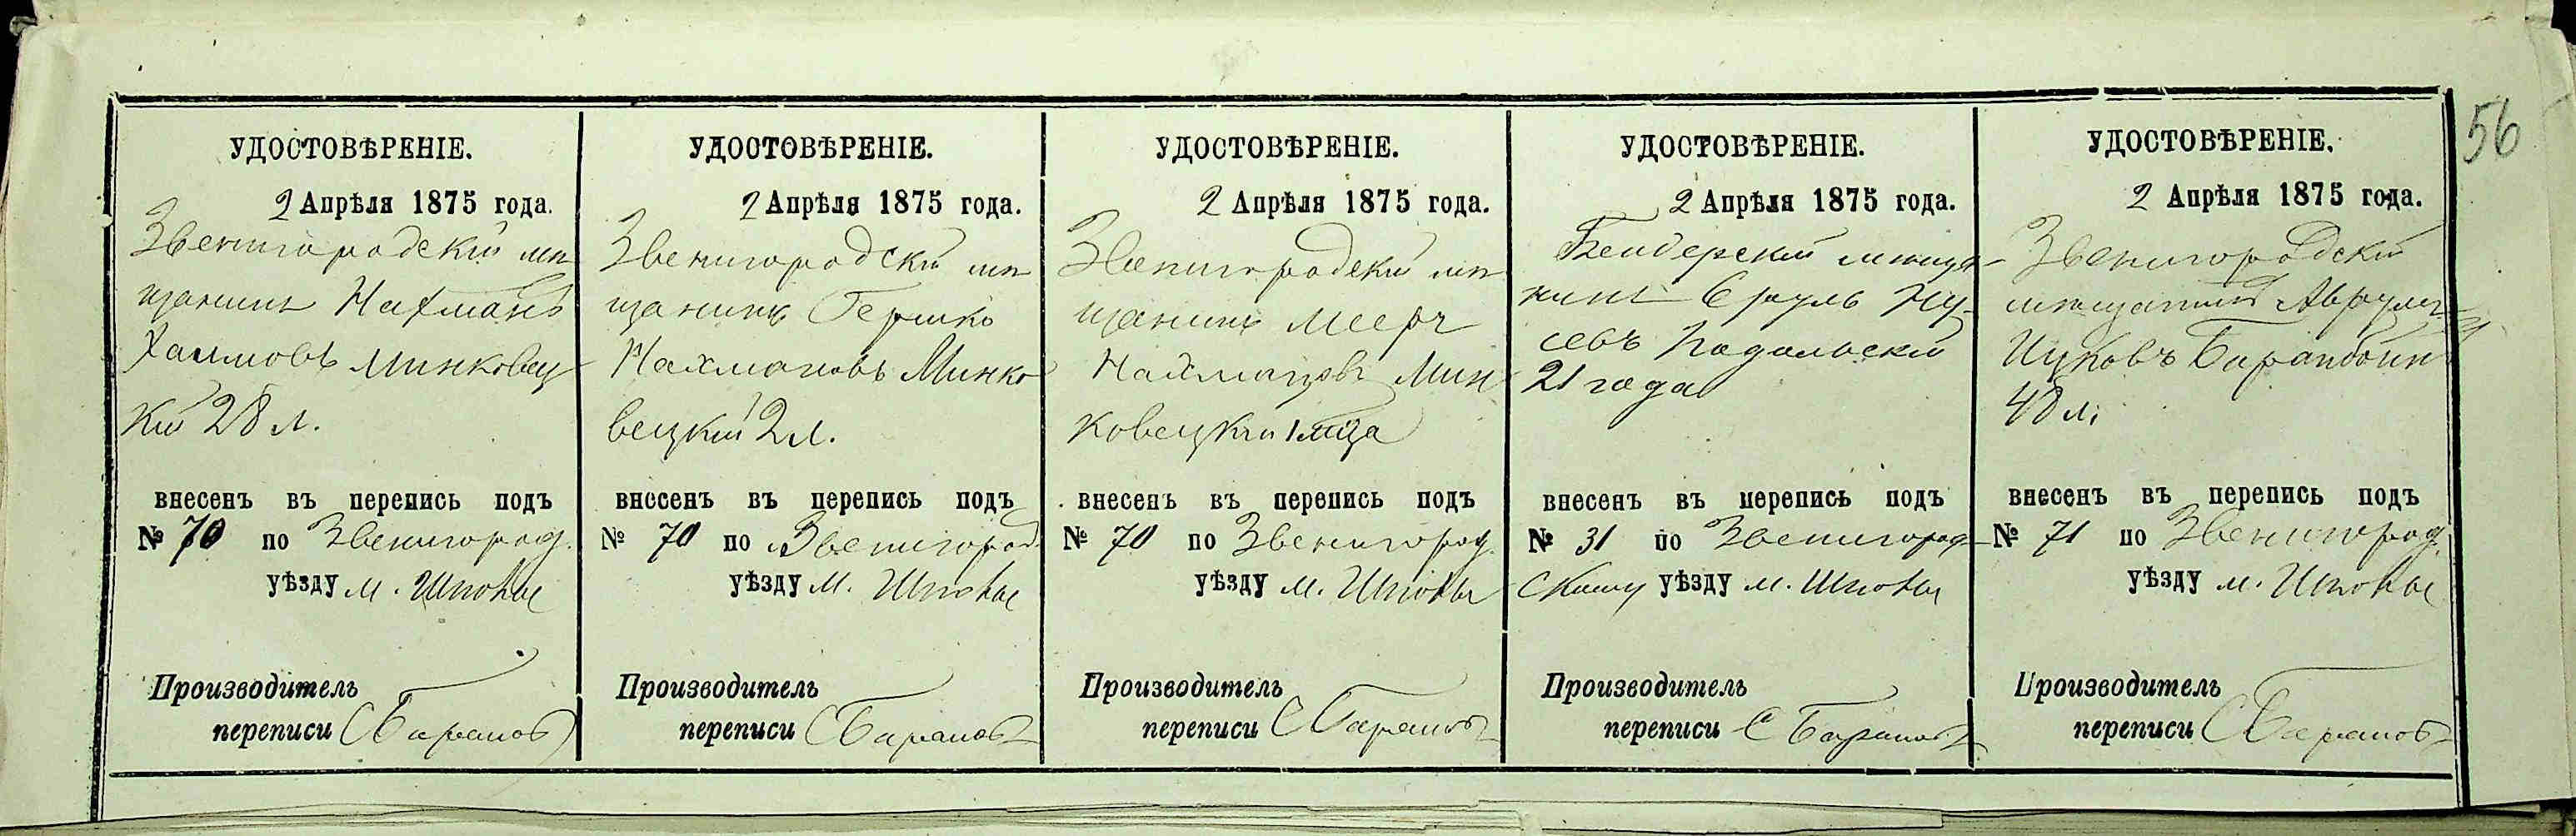 56
УДОСТОВѢРЕНІЕ.
2 Апрѣля 1875 года.
Звенигородскій мѣ
щанинъ Нахманъ
Хаимовъ Минковец
кій 28 л.
внесенъ въ перепись подъ
№ 70 по Звенигород.
уѣзду м. Шполы
Производитель
переписи С Барановъ
УДОСТОВѢРЕНІЕ.
2 Апрѣля 1875 года.
Звенигородскій мѣ
щанинъ Гершко
Нахмановъ Минко
вецкій 2 л.
внесенъ въ перепись подъ
№ 70 по Звенигород.
уѣзду м. Шполы
Производитель
переписи С Барановъ
УДОСТОВѢРЕНІЕ.
2 Апрѣля 1875 года.
Звенигородскій мѣ
щанинъ Мееръ
Нахмановъ Мин
ковецкій 1 мца
внесенъ въ перепись подъ
№ 70 по Звенигород.
уѣзду м. Шполы
Производитель
переписи С Барановъ
УДОСТОВѢРЕНІЕ.
2 Апрѣля 1875 года.
Бендерскій мѣща-
нинъ Сруль Ну-
севъ Подольскій
21 года
внесенъ въ перепись подъ
№ 31 по Звенигород-
скому уѣзду м. Шполы
Производитель
переписи С Барановъ
УДОСТОВѢРЕНІЕ.
2 Апрѣля 1875 года.
Звенигородскій
мѣщанинъ Аврумъ
Ицковъ
48 л.
внесенъ въ перепись подъ
№ 71 по Звенигород.
уѣзду м. Шполы
Производитель
переписи С Барановъ